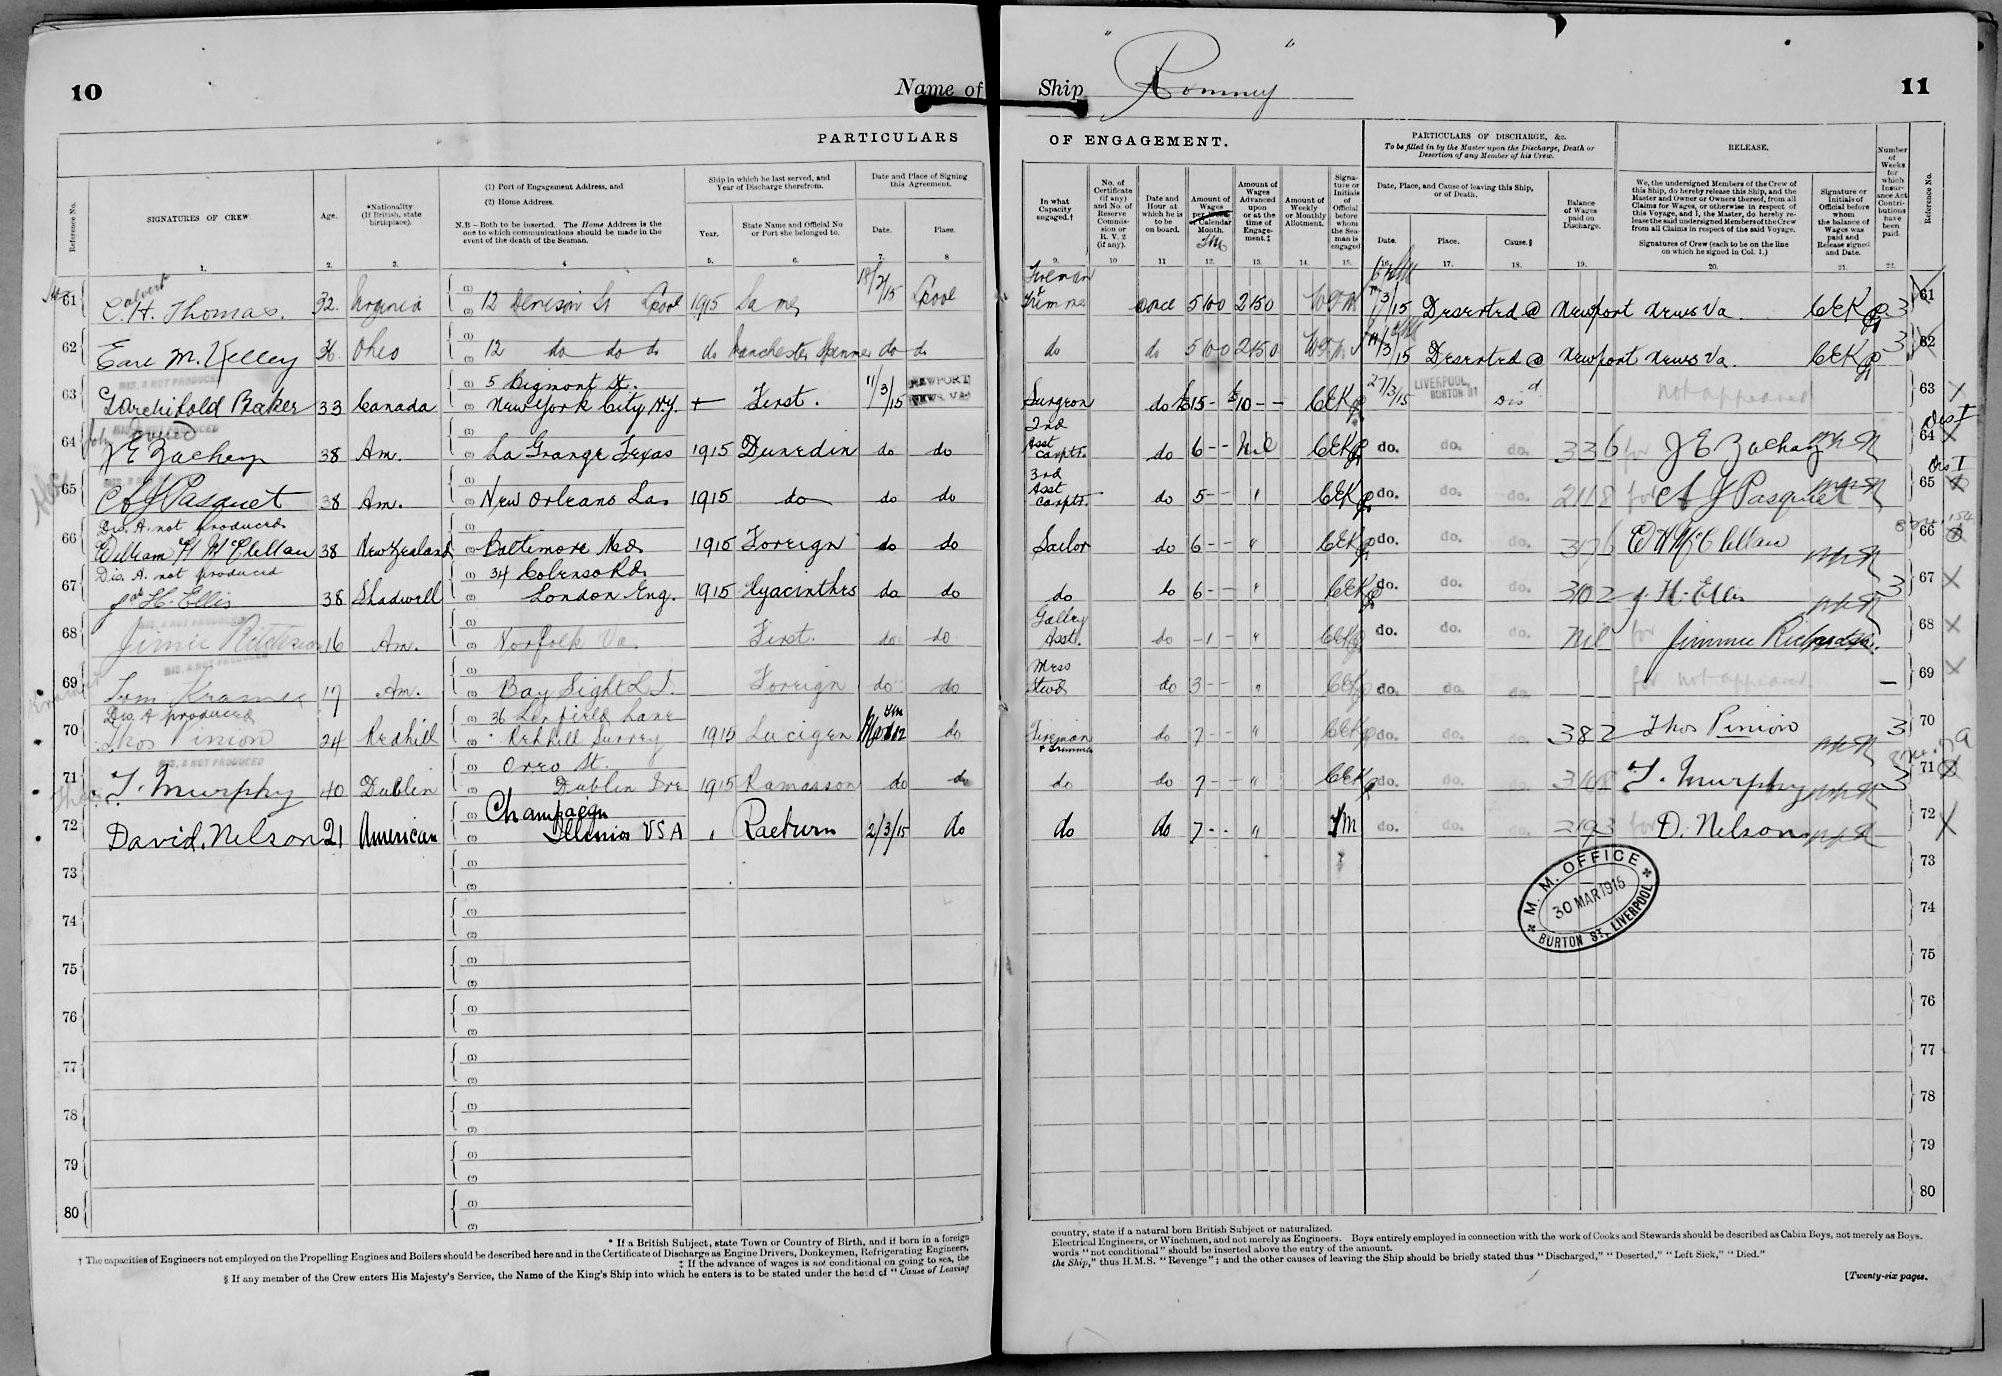 10
Name of
PARTICULARS
Reference No.
SIGNATURES OF CREW
Age.
*Nationality
(If British, state
birthplace).
(1) Port of Engagement Address, and
(2) Home Address.
N.B – Both to be inserted. The Home Address is the
one to which communications should be made in the
event of the death of the Seaman.
Ship in which he last served, and
Year of Discharge therefrom.
Year.
State Name and Official No
or Port she belonged to.
Date and Place of Signing
this Agreement.
Date.
Place.
1. 2. 3. 4 5. 6. 7. 8
61 C. H. Thomas. 32. Virginia 12 Denison St Lpool 1915 Same 18/2/15 Lpool
62 Earl M. Kelley 36 Ohio 12 do do do do Manchester Spinner do do
DIS. A NOT PRODUCED
63 G Archibold Baker 33 Canada 5 Bigmont St.
New York City N.Y. + First. 11/3/15 NEWPORT NEWS VA.
64 J E Zachery 38 Am. La Grange Texas 1915 Dunedin do do
65 A J Pasquet 38 Am. New Orleans La. 1915 do do do
Dis. A. not produced
66 William H McClellan 38 New Zealand Baltimore Md. 1915 Foreign do do
Dis. A. not produced
34 Colenso Rd.
67 H. Ellis 38 Shadwell London Eng. 1915 Hyacinthes do do
DIS. A NOT PRODUCED
68 Jimie 16 Am. Norfolk Va. First. do do
DIS. A NOT PRODUCED
69 Tom Kramer 17 Am. Bay Sight L I. Foreign do do
Dis. A produced
70 Thos Pinion 24 Redhill 36 Lane
Redhill Surrey 1915 Lucigen March 12 do
DIS. A NOT PRODUCED
71 T. Murphy 40 Dublin St.
Dublin Ire 1915 Ramasson do do
72 David. Nelson 21 American Champaign
Illinois USA " Raeburn 2/3/15 do
73
74
75
76
77
78
79
80
* If a British Subject, state Town or Country of Birth, and if born in a foreign
† The capacities of Engineers not employed on the Propelling Engines and Boilers should be described here and in the Certificate of Discharge as Engine Drivers, Donkeymen, Refrigerating Engineers,
‡ If the advance of wages is not conditional on going to sea, the
§ If any member of the Crew enters His Majesty's Service, the Name of the King's Ship into which he enters is to be stated under the head of "Cause of Leaving
Ship
" Romney "
11
OF ENGAGEMENT.
PARTICULARS OF DISCHARGE, &c.
To be filled in by the Master upon the Discharge, Death or
Desertion of any Member of his Crew.
RELEASE.
In what
Capacity
engaged.†
No. of
Certificate
(if any)
and No. of
Reserve
Commis-
sion or
R. V. 2
(if any).
Date and
Hour at
which he is
to be
on board.
Amount of
Wages
per Week
Calendar
Month.
Amount of
Wages
Advanced
upon
or at the
time of
Engage-
ment.‡
Amount of
Weekly
or Monthly
Allotment.
Signa-
ture or
Initials
of
Official
before
whom
the Sea-
man is
engaged
Date, Place, and Cause of leaving this Ship,
or of Death.
Date.
Place.
Cause.§
Balance
of Wages
paid on
Discharge.
We, the undersigned Members of the Crew of
this Ship, do hereby release this Ship, and the
Master and Owner or Owners thereof, from all
Claims for Wages, or otherwise in respect of
this Voyage, and I, the Master, do hereby re-
lease the said undersigned Members of the Crew
from all Claims in respect of the said Voyage.
Signatures of Crew (each to be on the line
on which he signed in Col. 1.)
Signature or
Initials of
Official before
whom
the balance of
Wages was
paid and
Release signed
and Date.
Number
of
Weeks
for
which
Insur-
ance Act
Contri-
butions
have
been
paid.
Reference No.
9. 10 11 12. 13. 14. 15. 16. 17. 18. 19. 20. 21. 22.
Fireman
+ Trimmer once 5 10 0 2 15 0 /3/15 Deserted @ Newport News Va. CEK 3 61
do do 5 10 0 2 15 0 /3/15 Deserted @ Newport News Va. CEK 3 62
Surgeon do £15 - $10 - - CEK 27/3/15 LIVERPOOL, BURTON ST Disd not appeared 63
2nd
Asst
Carptr. do 6 - - Nil CEK do. do. do. 33 6 for J E Zachary 64
3rd
Asst
Carptr. do 5 - - " CEK do. do. do. 2118 for A J Pasquet 65
Sailor do 6 - - " CEK do. do. do. W H McClellan 66
do do 6 - - " CEK do. do. do. 3102 H. Ellis 3 67
Galley
Asst. do - 1 - " CEK do. do. do. Nil for Jimmie 68
Mess
Stwd do 3 - - " CEK do. do. do. for not appeared — 69
Fireman
+ Trimmer do 7 - - " CEK do. do. do. 382 Thos Pinion 3 70
do do 7 - - " CEK do. do. do. T. Murphy 3 71
do do 7 - - " do. do. do. for D. Nelson 72
73
M. M. OFFICE
30 MAR 1915
BURTON ST., LIVERPOOL
74
75
76
77
78
79
80
country, state if a natural born British Subject or naturalized.
Electrical Engineers, or Winchmen, and not merely as Engineers. Boys entirely employed in connection with the work of Cooks and Stewards should be described as Cabin Boys, not merely as Boys.
words "not conditional" should be inserted above the entry of the amount.
the Ship," thus H.M.S. "Revenge"; and the other causes of leaving the Ship should be briefly stated thus "Discharged," "Deserted," "Left Sick," "Died."
[Twenty-six pages.